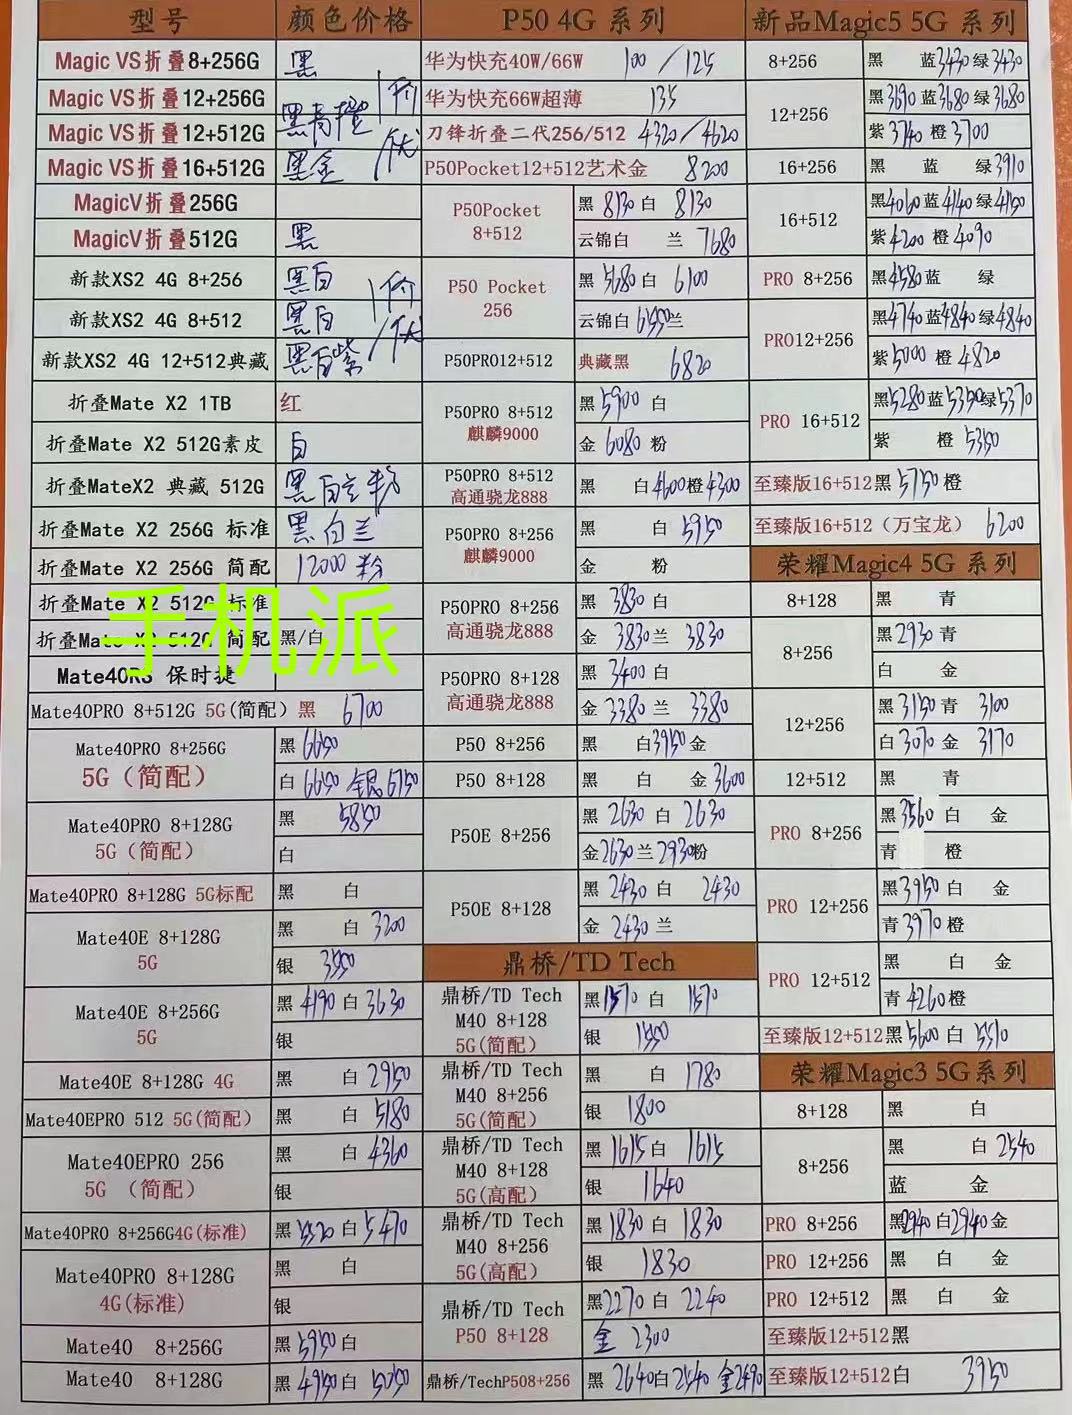 型号 颜色价格 P50 4G 系列 新品Magic5 5G 系列
Magic VS折叠8+256G 黑
Magic VS折叠12+256G 黑青橙
Magic VS折叠12+512G
Magic VS折叠16+512G 黑金
价/优
MagicV折叠256G
MagicV折叠512G 黑
新款XS2 4G 8+256 黑白
新款XS2 4G 8+512 黑白
新款XS2 4G 12+512典藏 黑白紫
价/优
折叠Mate X2 1TB 红
折叠Mate X2 512G素皮 白
折叠MateX2 典藏 512G 黑白兰粉
折叠Mate X2 256G 标准 黑白兰
折叠Mate X2 256G 简配 12000 粉
折叠Mate X2 512G 标准
折叠Mate X2 512G 简配 黑/白
手机派
Mate40RS 保时捷
Mate40PRO 8+512G 5G(简配) 黑 6700
Mate40PRO 8+256G
5G(简配)
黑 6650
白 6650 银 6750
Mate40PRO 8+128G
5G(简配)
黑 5850
白
Mate40PRO 8+128G 5G标配 黑 白
Mate40E 8+128G
5G
黑 白 3200
银 3550
Mate40E 8+256G
5G
黑 4190 白 3630
银
Mate40E 8+128G 4G 黑 白 2950
Mate40EPRO 512 5G(简配) 黑 白 5180
Mate40EPRO 256
5G (简配)
黑 白 4360
银
Mate40PRO 8+256G4G(标准) 黑 白 5470
Mate40PRO 8+128G
4G(标准)
黑 白
银
Mate40 8+256G 黑 5950 白
Mate40 8+128G 黑 4950 白 5050
华为快充40W/66W 100 / 125
华为快充66W超薄 135
刀锋折叠二代256/512 4320/4620
P50Pocket12+512艺术金 8200
P50Pocket
8+512
黑 8130 白 8130
云锦白 兰 7680
P50 Pocket
256
黑 5680 白 6100
云锦白 6550 兰
P50PRO12+512 典藏黑 6820
P50PRO 8+512
麒麟9000
黑 5900 白
金 6080 粉
P50PRO 8+512
高通骁龙888
黑 白 4600 橙 4300
P50PRO 8+256
麒麟9000
黑 白 5950
金 粉
P50PRO 8+256
高通骁龙888
黑 3830 白
金 3830 兰 3830
P50PRO 8+128
高通骁龙888
黑 3400 白
金 3380 兰 3380
P50 8+256 黑 白 3950 金
P50 8+128 黑 白 金 3600
P50E 8+256
黑 2630 白 2630
金 2630 兰 2930 粉
P50E 8+128
黑 2430 白 2430
金 2430 兰
鼎桥/TD Tech
鼎桥/TD Tech
M40 8+128
5G(简配)
黑 1570 白 1570
银 1550
鼎桥/TD Tech
M40 8+256
5G(简配)
黑 白 1780
银 1800
鼎桥/TD Tech
M40 8+128
5G(高配)
黑 1615 白 1615
银 1640
鼎桥/TD Tech
M40 8+256
5G(高配)
黑 1830 白 1830
银 1830
鼎桥/TD Tech
P50 8+128
黑 2270 白 2240
金 2300
鼎桥/TechP508+256 黑 2640 白 2540 金 2490
8+256 黑 蓝 3430 绿 3430
12+256
黑 3690 蓝 3680 绿 3680
紫 3740 橙 3700
16+256 黑 蓝 绿 3910
16+512
黑 4060 蓝 4140 绿 4150
紫 4200 橙 4090
PRO 8+256 黑 4580 蓝 绿
PRO12+256
黑 4740 蓝 4840 绿 4840
紫 5000 橙 4820
PRO 16+512
黑 5280 蓝 5350 绿 5370
紫 橙 5350
至臻版16+512黑 5750 橙
至臻版16+512 (万宝龙) 6200
荣耀Magic4 5G 系列
8+128 黑 青
8+256
黑 2930 青
白 金
12+256
黑 3150 青 3100
白 3070 金 3170
12+512 黑 青
PRO 8+256
黑 3560 白 金
青 橙
PRO 12+256
黑 3950 白 金
青 3970 橙
PRO 12+512
黑 白 金
青 4260 橙
至臻版12+512黑 5600 白 5510
荣耀Magic3 5G 系列
8+128 黑 白
8+256
黑 白 2540
蓝 金
PRO 8+256 黑 2940 白 2940 金
PRO 12+256 黑 白 金
PRO 12+512 黑 白 金
至臻版12+512黑
至臻版12+512白 3950